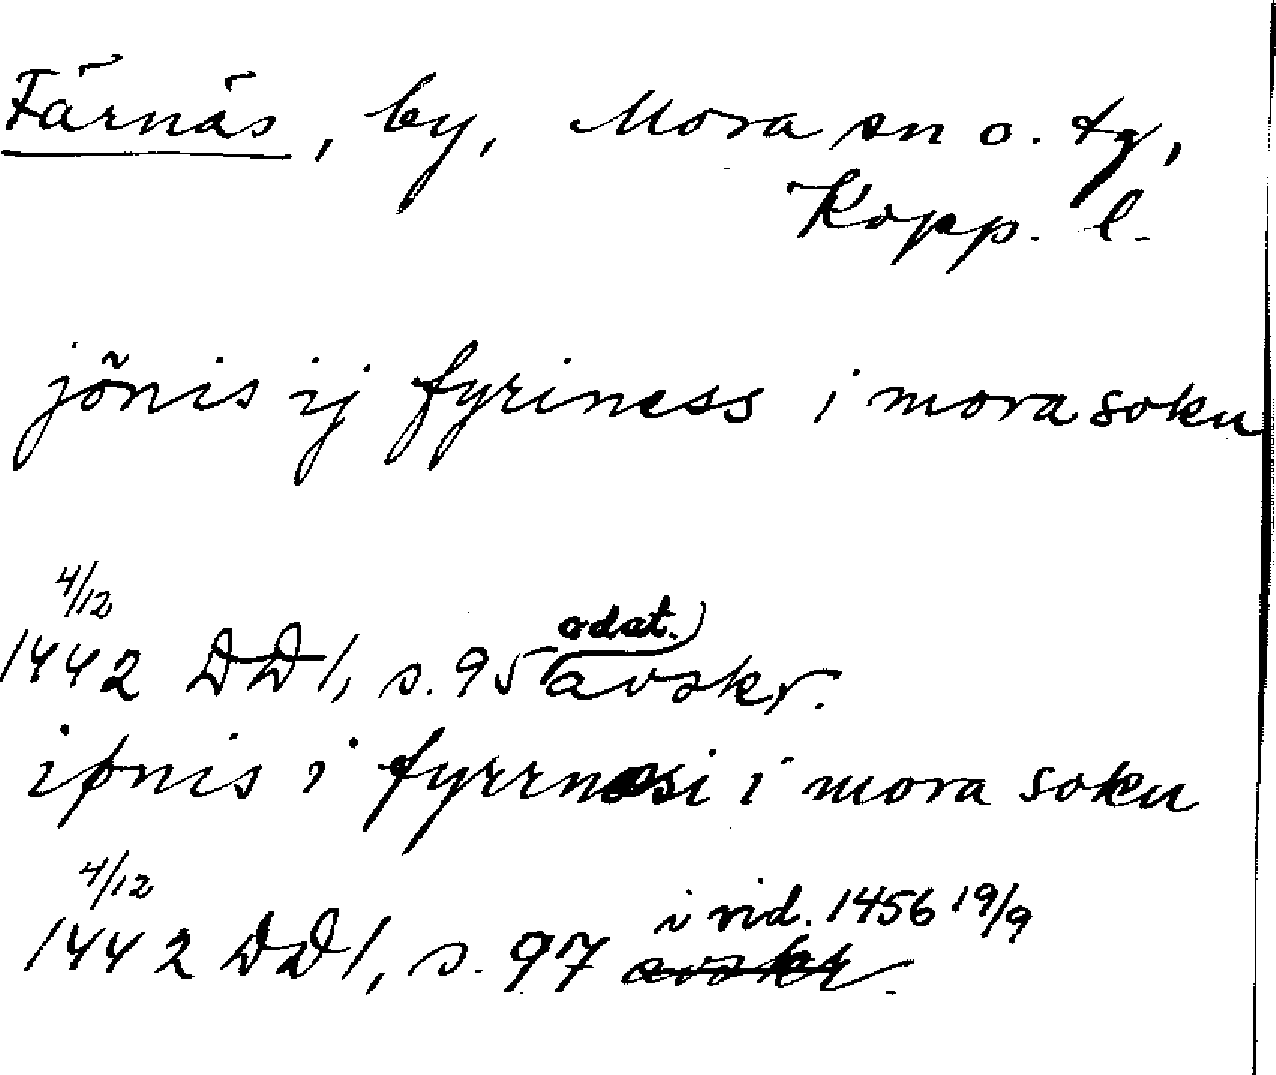 Färnäs, by, Mora sn o. tg,
Kopp. l.
jönis ij fyriness i mora soku
4/12
odat.
1442 DD1, s. 95 avskr.
iønis i fyrrnæsi i mora soku
4/12
i vid. 1456 19/9
1442 DD1, s. 97 avskr.